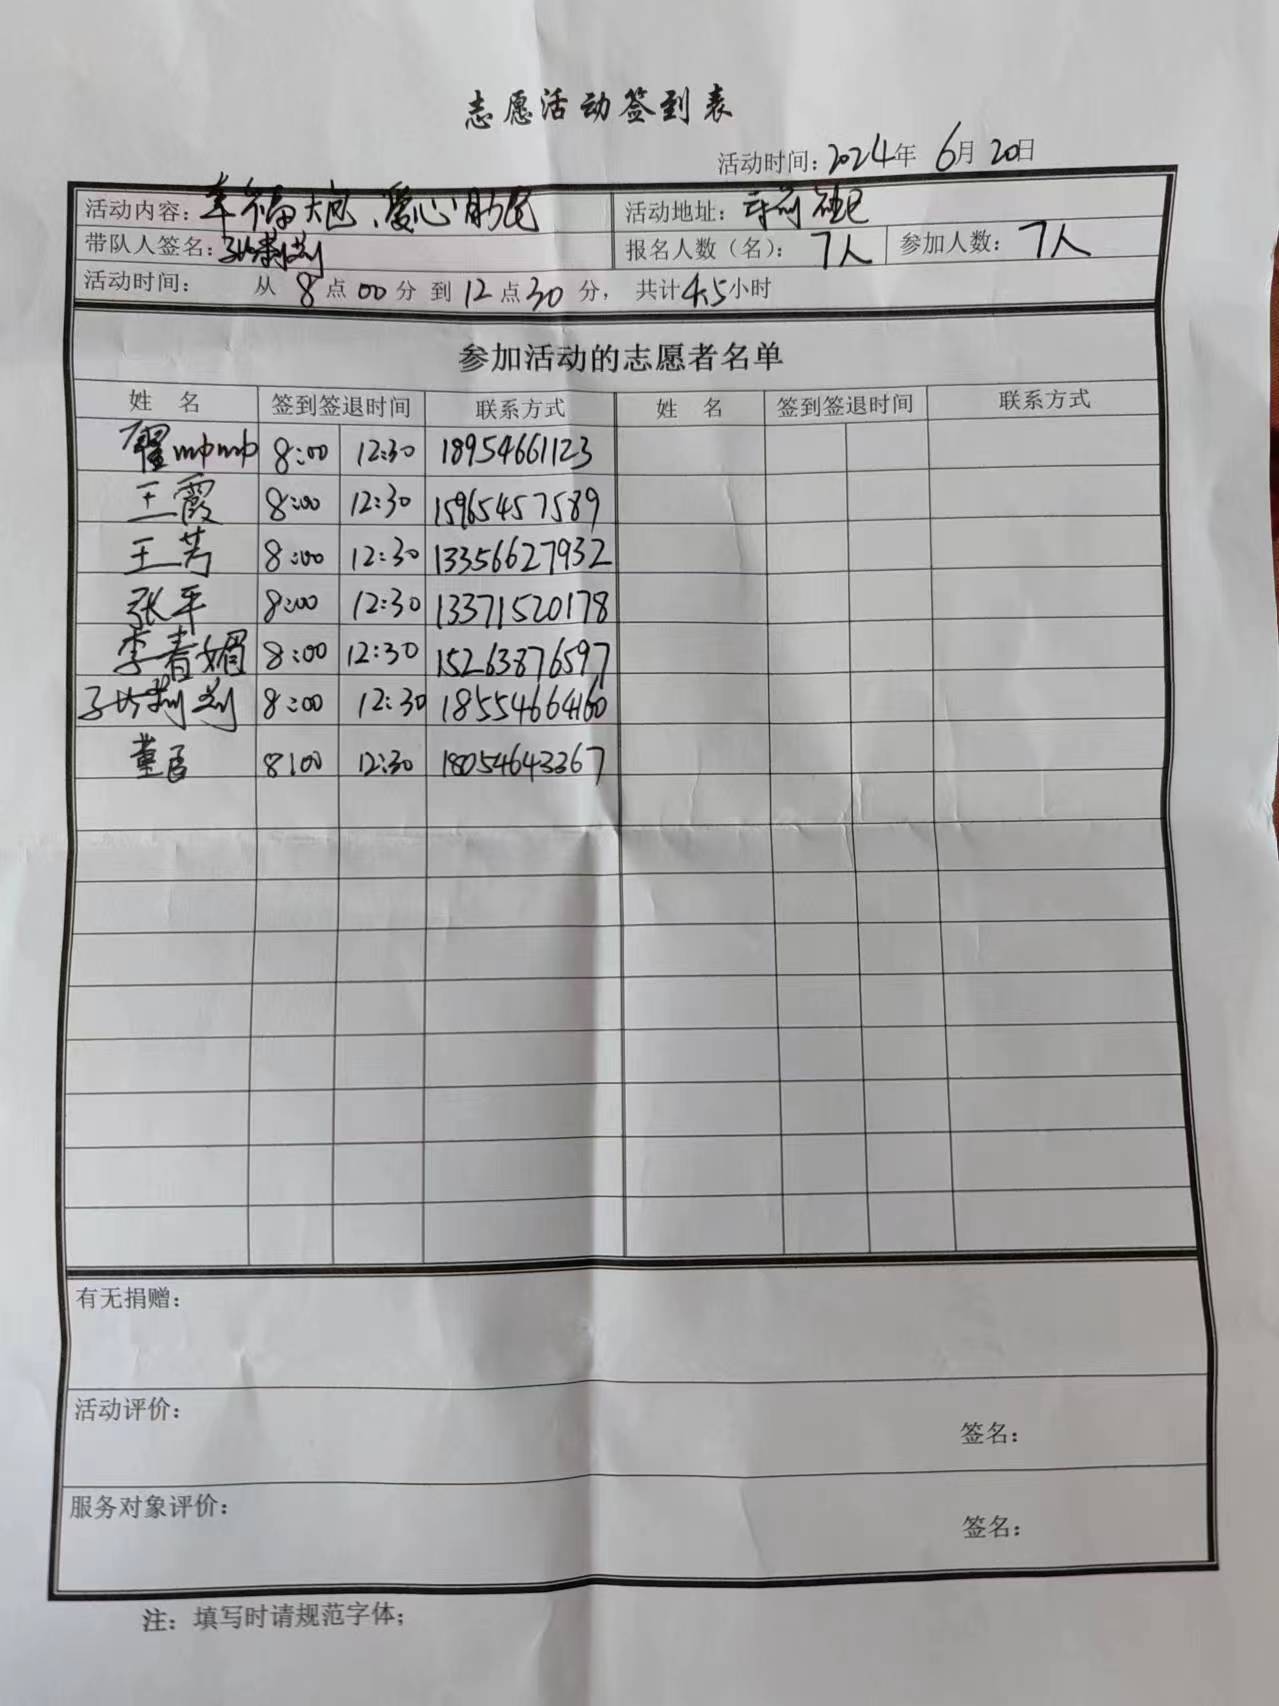 志愿活动签到表
活动时间：2024年 6月 20日
活动内容：幸福大包、爱心助老 活动地址：社区
带队人签名：孙莉莉 报名人数（名）：7人 参加人数：7人
活动时间： 从 8 点 00 分 到 12 点 30 分， 共计 4.5 小时
参加活动的志愿者名单
姓 名 签到签退时间 联系方式 姓 名 签到签退时间 联系方式
翟 8:00 12:30 18954661123
王霞 8:00 12:30 15965457589
王芳 8:00 12:30 13356627932
张平 8:00 12:30 13371520178
李春娟 8:00 12:30 15263876597
孙莉莉 8:00 12:30 18554664160
董 8:00 12:30 18054643367
有无捐赠：
活动评价：
签名：
服务对象评价：
签名：
注：填写时请规范字体；